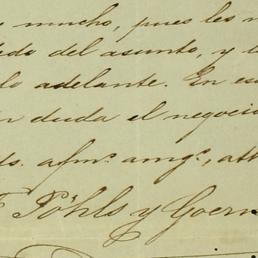 mucho, pues les
del asunto, y
adelante. En es
duda el negoci
afmº. amgº., att
F Pöhls y Goern